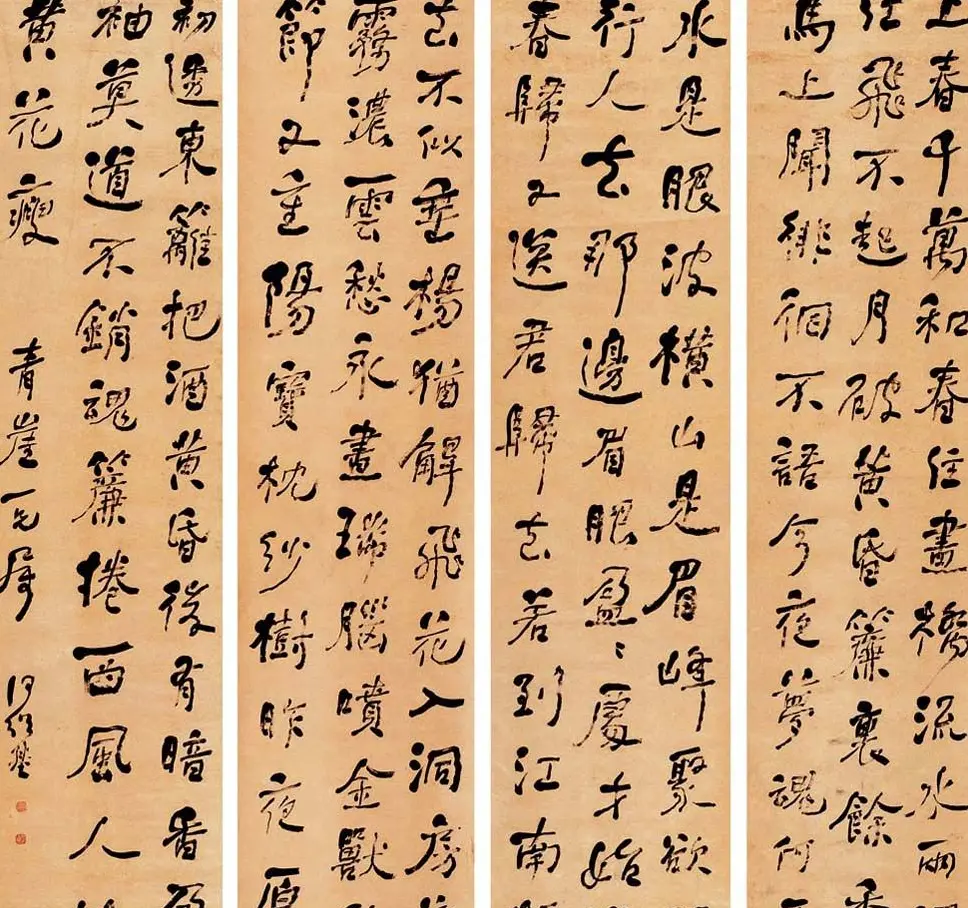 上春千萬和春住畫橋流水雨
飛不起月破黄昏簾裏餘香
馬上聞徘徊不語今夜夢魂何
水是眼波橫山是眉峰聚欲
行人去那邊眉眼盈〻處才始
春歸又送君歸去若到江南
去不似垂楊猶解飛花入洞房
霧濃雲愁永晝瑞腦噴金獸
節又重陽寶枕紗樹昨夜
初透東籬把酒黄昏後有暗香盈
袖莫道不銷魂簾捲西風人
黄花瘦 青崖一兄屬 何紹基